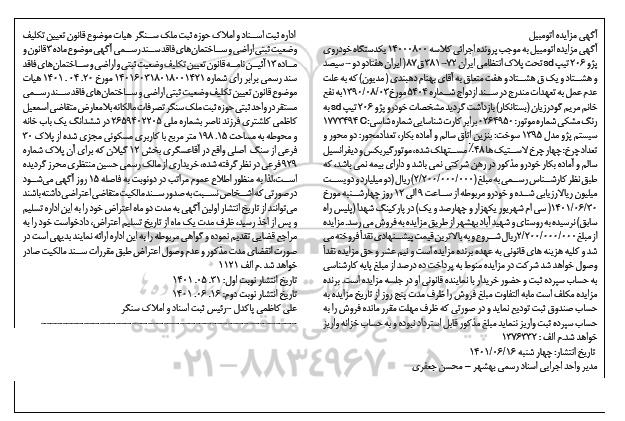 آگهی مزایده اتومبیل
آگهی مزایده اتومبیل به موجب پرونده اجرائی کلاسه ۱۴۰۰۰۸۰۰ یکدستگاه خودروی
پژو ۲۰۶ تیپ sd تحت پلاک انتظامی ایران ۷۲-۲۸۱ق۸۷ (ایران هفتاد و دو – سیصد
و هشتاد و یک ق هشتاد و هفت متعلق به آقای بهنام دهبندی (مدیون) که به علت
عدم عمل به تعهدات مندرج در سند ازدواج شماره ۵۴۰۴ مورخ ۱۳۹۰/۰۸/۰۳ به نفع
خانم مریم گودرزیان (بستانکار) بازداشت گردید مشخصات خودرو پژو ۲۰۶ تیپ sd به
رنگ مشکی شماره موتور: ۰۲۶۴۹۵۰ برابر کارت شناسایی شماره شاسی: ۱۷۷۳۴۹۴C
سیستم پژو مدل ۱۳۹۵ سوخت: بنزین اتاق سالم و آماده بکار، تعداد محور: دو محور و
تعداد چرخ: چهار چرخ لاستیک ها ۴۸٪ مستهلک شده، موتور گیربکس و دیفرانسیل
سالم و آماده بکار خودرو مذکور در رهن شرکتی نمی باشد و دارای بیمه نمی باشد، که
طبق نظر کارشناس رسمی به مبلغ (۲/۲۰۰/۰۰۰/۰۰۰) ریال (دو میلیارد و دویست
میلیون ریال) ارزیابی شده و خودرو مربوطه از ساعت ۹ الی ۱۲ روز چهارشنبه مورخ
۱۴۰۱/۰۶/۳۰( سی ام شهریور یکهزار و چهارصد و یک) در پارکینگ شهدا (پلیس راه
سابق) نرسیده به روستای و شهید آباد بهشهر از طریق مزایده به فروش می رسد. مزایده
از مبلغ ۲/۲۰۰/۰۰۰/۰۰۰ ریال شروع و به بالاترین قیمت پیشنهادی نقداً فروخته می
شد و کلیه هزینه های قانونی به عهده برنده مزایده است و نیم عشر و حق مزایده نقداً
وصول خواهد شد شرکت در مزایده منوط به پرداخت ده درصد از مبلغ پایه کارشناسی
به حساب سپرده ثبت و حضور خریدار یا نماینده قانونی او در جلسه مزایده است. برنده
مزایده مکلف است مابه التفاوت مبلغ فروش را ظرف مدت پنج روز از تاریخ مزایده به
حساب صندوق ثبت تودیع نماید و در صورتی که ظرف مهلت مقرر مانده فروش را به
حساب سپرده ثبت واریز ننماید مبلغ مذکور قابل استرداد نبوده و به حساب خزانه واریز
خواهد شد.م الف : ۱۳۷۶۳۲۲
تاریخ انتشار: چهار شنبه ۱۴۰۱/۰۶/۱۶
مدیر واحد اجرایی اسناد رسمی بهشهر – محسن جعفری
اداره ثبت اسناد و املاک حوزه ثبت ملک سنگر هیات موضوع قانون تعیین تکلیف
وضعیت ثبتی اراضی و ساختمان‌های فاقد سند رسمی آگهی موضوع ماده ۳قانون و
ماده ۱۳ آئین نامه قانون تعیین تکلیف وضعیت ثبتی و اراضی و ساختمان‌های فاقد
سند رسمی برابر رأی شماره ۱۴۰۱۶۰۳۱۸۰۱۸۰۰۱۴۲۱ مورخ ۲۰. ۰۴. ۱۴۰۱ هیات
موضوع قانون تعیین تکلیف وضعیت ثبتی اراضی و ساختمان‌های فاقد سند رسمی
مستقر در واحد ثبتی حوزه ثبت ملک سنگر تصرفات مالکانه بلامعارض متقاضی اسمعیل
کاظمی کلشتری فرزند ناصر بشماره ملی ۲۶۵۹۴۰۲۲۰۵ در ششدانگ یک باب خانه
و محوطه به مساحت ۱۹۸.۱۵ متر مربع با کاربری مسکونی مجزی شده از پلاک ۳۰
فرعی از سنگ اصلی واقع در آقاعسگری بخش ۱۲ گیلان که برای آن پلاک شماره
۹۲۹ فرعی در نظر گرفته شده، خریداری از مالک رسمی حسین منتظری محرز گردیده
است،لذا به منظور اطلاع عموم مراتب در دو نوبت به فاصله ۱۵ روز آگهی می‌شود
در صورتی که اشخاص نسبت به صدور سند مالکیت متقاضی اعتراضی داشته باشند
می‌توانند از تاریخ انتشار اولین آگهی به مدت دو ماه اعتراض خود را به این اداره تسلیم
و پس از أخذ رسید، ظرف مدت یک ماه از تاریخ تسلیم اعتراض، دادخواست خود را به
مراجع قضایی تقدیم نموده و گواهی مربوطه را به این اداره ارائه نمایند بدیهی است در
صورت انقضای مدت مذکور و عدم وصول اعتراض طبق مقررات سند مالکیت صادر
خواهد شد .م الف ۱۱۲۱
تاریخ انتشار نوبت اول: ۳۱. ۰۵. ۱۴۰۱
تاریخ انتشار نوبت دوم: ۱۶. ۰۶. ۱۴۰۱
علی کاظمی پاکدل –رئیس ثبت اسناد و املاک سنگر
۰۲۱-۸۸۳۴۹۶۷۰-۵